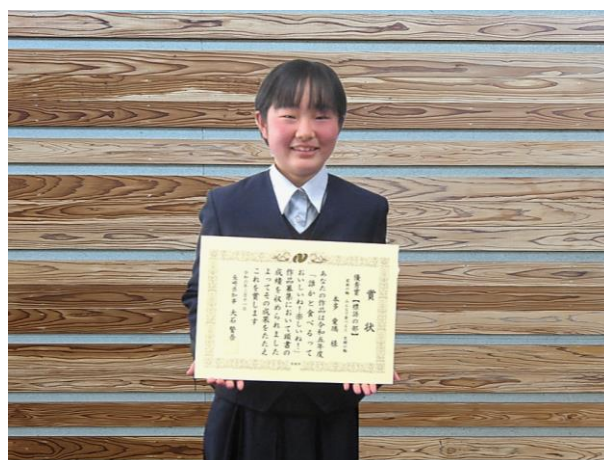 賞状
優秀賞【標語の部】
あなたの作品は令和五年度
「誰かと食べるって
おいしいね!楽しいね!」
作品募集において頭書の
成績を収められました
よってその成果をたたえ
これを賞します
長崎県知事 大石賢吾